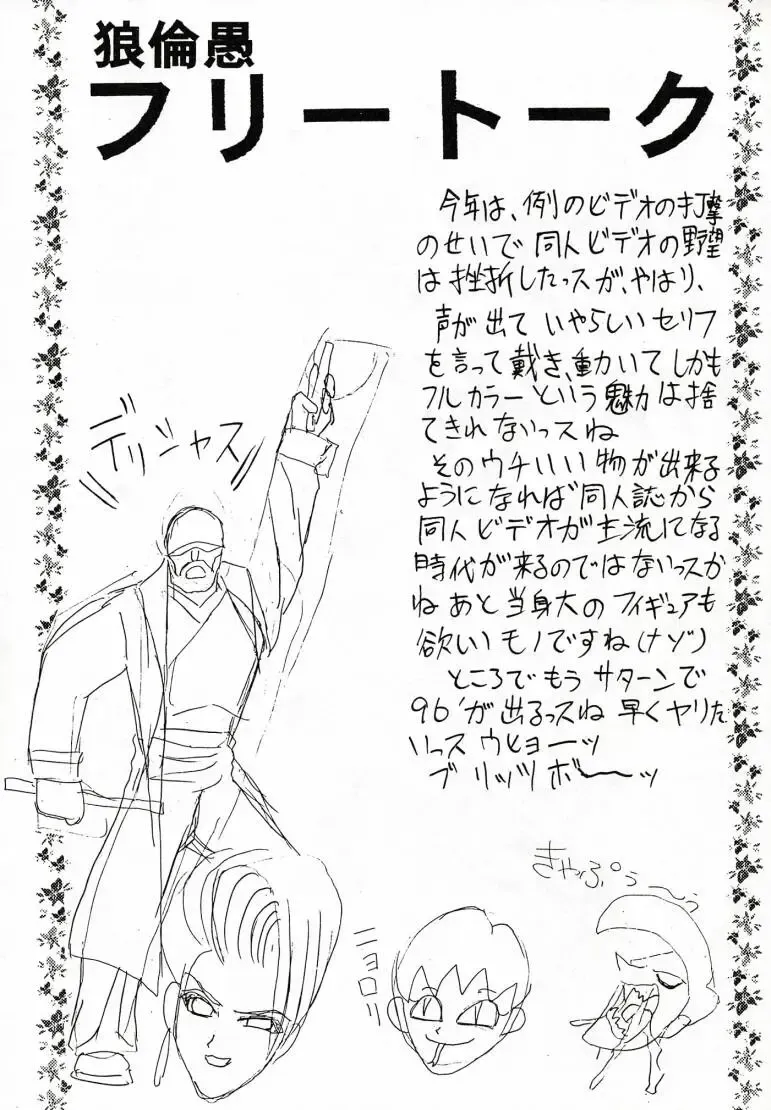 狼倫愚
フリートーク
今年は、例のビデオの打撃
のせいで同人ビデオの野望
は挫折したっスが、やはり、
声が出て いやらしいセリフ
を言って戴き、動いてしかも
フルカラーという魅力は捨
てきれないっスね
そのウチいい物が出来る
ようになれば同人誌から
同人ビデオが主流になる
時代が来るのではないっスか
ね あと当身大のフィギュアも
欲しいモノですね(ナゾ)
ところでもうサターンで
96'が出るっスね 早くヤリた
いっス ウヒョーッ
ブリッツボーーッ
デリシャス
ニョロリ
きゃぷぅ〜う